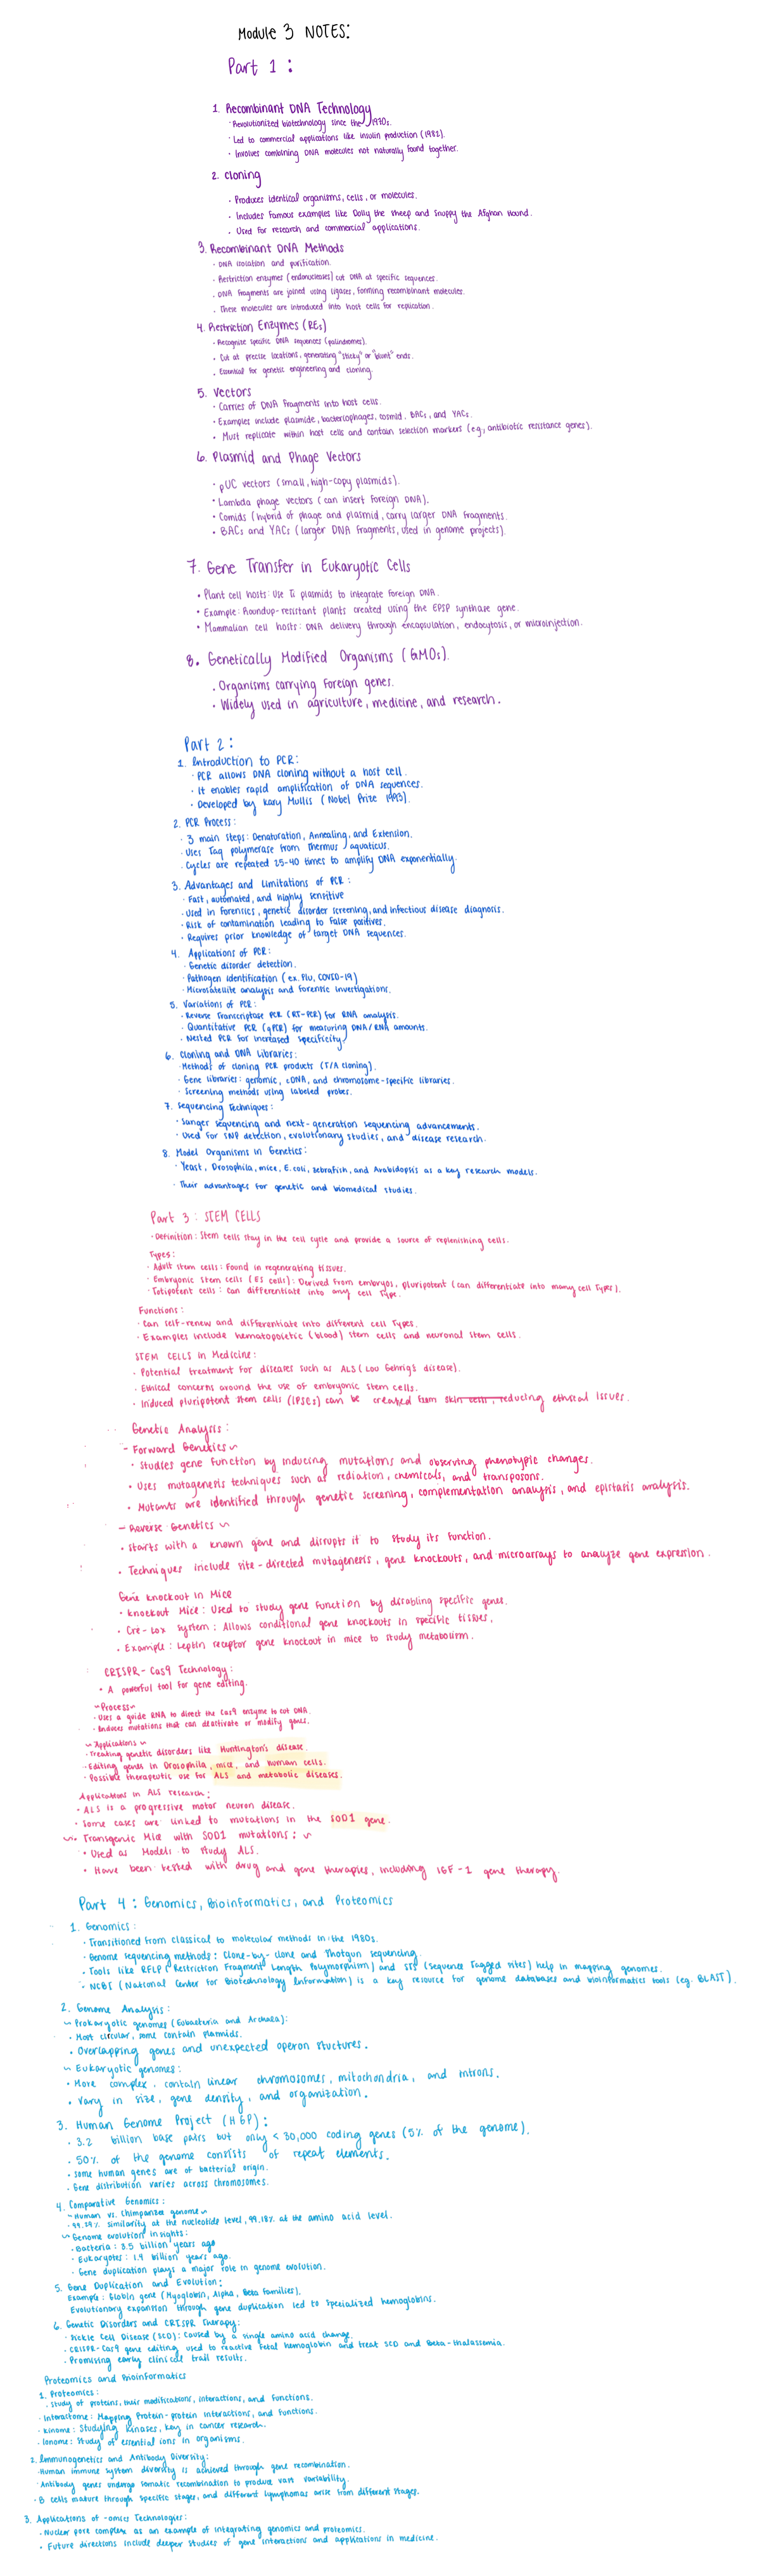 Module 3 NOTES:
Part 1 :
1. Recombinant DNA Technology
· Revolutionized biotechnology since the 1970s.
· Led to commercial applications like insulin production (1982).
· Involves combining DNA molecules not naturally found together.
2. Cloning
· Produces identical organisms, cells, or molecules.
· Includes famous examples like Dolly the sheep and Snuppy the Afghan Hound.
· Used for research and commercial applications.
3. Recombinant DNA Methods
· DNA isolation and purification.
· Restriction enzymes (endonucleases) cut DNA at specific sequences.
· DNA fragments are joined using ligases, forming recombinant molecules.
· These molecules are introduced into host cells for replication.
4. Restriction Enzymes (REs)
· Recognize specific DNA sequences (palindromes).
· Cut at precise locations, generating "sticky" or "blunt" ends.
· Essential for genetic engineering and cloning.
5. Vectors
· Carries of DNA fragments into host cells.
· Examples include plasmids, bacteriophages, cosmid, BACs, and YACs.
· Must replicate within host cells and contain selection markers (eg, antibiotic resistance genes).
6. Plasmid and Phage Vectors
· pUC vectors (small, high-copy plasmids).
· Lambda phage vectors (can insert foreign DNA).
· Comids (hybrid of phage and plasmid, carry larger DNA fragments.
· BACs and YACs (larger DNA fragments, used in genome projects).
7. Gene Transfer in Eukaryotic Cells
· Plant cell hosts: Use Ti plasmids to integrate foreign DNA.
· Example: Roundup-resistant plants created using the EPSP synthase gene.
· Mammalian cell hosts: DNA delivery through encapsulation, endocytosis, or microinjection.
8. Genetically Modified Organisms (GMOs).
· Organisms carrying foreign genes.
· Widely used in agriculture, medicine, and research.
Part 2 :
1. Introduction to PCR:
· PCR allows DNA cloning without a host cell.
· It enables rapid amplification of DNA sequences.
· Developed by Kary Mullis (Nobel Prize 1993).
2. PCR Process:
· 3 main steps: Denaturation, Annealing, and Extension.
· Uses Taq polymerase from Thermus aquaticus.
· Cycles are repeated 25-40 times to amplify DNA exponentially.
3. Advantages and Limitations of PCR :
· Fast, automated, and highly sensitive
· Used in forensics, genetic disorder screening, and infectious disease diagnosis.
· Risk of contamination leading to false positives.
· Requires prior knowledge of target DNA sequences.
4. Applications of PCR:
· Genetic disorder detection.
· Pathogen identification (ex. Flu, COVID-19)
· Microsatellite analysis and forensic investigations.
5. Variations of PCR:
· Reverse Transcriptase PCR (RT-PCR) for RNA analysis.
· Quantitative PCR (qPCR) for measuring DNA/RNA amounts.
· Nested PCR for increased specificity.
6. Cloning and DNA Libraries:
· Methods of cloning PCR products (T/A cloning).
· Gene libraries: genomic, cDNA, and chromosome-specific libraries.
· Screening methods using labeled probes.
7. Sequencing Techniques:
· Sanger sequencing and next-generation sequencing advancements.
· Used for SNP detection, evolutionary studies, and disease research.
8. Model Organisms in Genetics:
· Yeast, Drosophila, mice, E.coli, zebrafish, and Arabidopsis as a key research models.
· Their advantages for genetic and biomedical studies.
Part 3 : STEM CELLS
· Definition: Stem cells stay in the cell cycle and provide a source of replenishing cells.
Types:
· Adult stem cells: Found in regenerating tissues.
· Embryonic stem cells (ES cells): Derived from embryos, pluripotent (can differentiate into many cell types).
· Totipotent cells: Can differentiate into any cell type.
Functions:
· Can self-renew and differentiate into different cell types.
· Examples include hematopoietic (blood) stem cells and neuronal stem cells.
STEM CELLS in Medicine:
· Potential treatment for diseases such as ALS (Lou Gehrig's disease).
· Ethical concerns around the use of embryonic stem cells.
· Induced pluripotent stem cells (iPSCs) can be created from skin cells, reducing ethical issues.
Genetic Analysis:
~ Forward Genetics ~
· Studies gene function by inducing mutations and observing phenotypic changes.
· Uses mutagenesis techniques such as radiation, chemicals, and transposons.
· Mutants are identified through genetic screening, complementation analysis, and epistasis analysis.
~ Reverse Genetics ~
· Starts with a known gene and disrupts it to study its function.
· Techniques include site-directed mutagenesis, gene knockouts, and microarrays to analyze gene expression.
Gene knockout in Mice
· Knockout Mice: Used to study gene function by disabling specific genes.
· Cre-Lox System: Allows conditional gene knockouts in specific tissues.
· Example: Leptin receptor gene knockout in mice to study metabolism.
CRISPR-Cas9 Technology:
· A powerful tool for gene editing.
~Process~
· Uses a guide RNA to direct the Cas9 enzyme to cut DNA.
· Induces mutations that can deactivate or modify genes.
~Applications~
· Treating genetic disorders like Huntington's disease.
· Editing genes in Drosophila, mice, and human cells.
· Possible therapeutic use for ALS and metabolic diseases.
Applications in ALS research:
· ALS is a progressive motor neuron disease.
· Some cases are linked to mutations in the SOD1 gene.
~· Transgenic Mice with SOD1 mutations: ~
· Used as Models to study ALS.
· Have been tested with drug and gene therapies, including IGF-1 gene therapy.
Part 4 : Genomics, Bioinformatics, and Proteomics
1. Genomics :
· Transitioned from classical to molecular methods in the 1980s.
· Genome sequencing methods: Clone-by-clone and Shotgun sequencing.
· Tools like RFLP (Restriction Fragment Length Polymorphism) and STS (Sequence Tagged Sites) help in mapping genomes.
· NCBI (National Center for Biotechnology Information) is a key resource for genome databases and bioinformatics tools (eg. BLAST).
2. Genome Analysis:
~ Prokaryotic genomes (Eubacteria and Archaea):
· Most circular, some contain plasmids.
· Overlapping genes and unexpected operon stuctures.
~ Eukaryotic genomes:
· More complex, contain linear chromosomes, mitochondria, and introns.
· Vary in size, gene density, and organization.
3. Human Genome Project (HGP):
· 3.2 billion base pairs but only < 30,000 coding genes (5% of the genome).
· 50% of the genome consists of repeat elements.
· Some human genes are of bacterial origin.
· Gene distribution varies across chromosomes.
4. Comparative Genomics:
~Human vs. Chimpanzee genome~
· 99.39% similarity at the nucleotide level, 99.18% at the amino acid level.
~ Genome evolution insights:
· Bacteria: 3.5 billion years ago
· Eukaryotes: 1.4 billion years ago.
· Gene duplication plays a major role in genome evolution.
5. Gene Duplication and Evolution:
Example: Globin gene (Myoglobin, Alpha, Beta families).
Evolutionary expansion through gene duplication led to specialized hemoglobins.
6. Genetic Disorders and CRISPR Therapy:
· Sickle Cell Disease (SCD): Caused by a single amino acid change.
· CRISPR-Cas9 gene editing used to reactive fetal hemoglobin and treat SCD and Beta-thalassemia.
· Promising early clinical trail results.
Proteomics and Bioinformatics
1. Proteomics:
· Study of proteins, their modifications, interactions, and functions.
· Interactome: Mapping Protein-protein interactions, and functions.
· Kinome: Studying Kinases, key in cancer research.
· Ionome: Study of essential ions in organisms.
2. Immunogenetics and Antibody Diversity:
· Human immune system diversity is achieved through gene recombination.
· Antibody genes undergo somatic recombination to produce vast variability.
· B cells mature through specific stages, and different lymphomas arise from different stages.
3. Applications of -omics Technologies:
· Nuclear pore complex as an example of integrating genomics and proteomics.
· Future directions include deeper studies of gene interactions and applications in medicine.